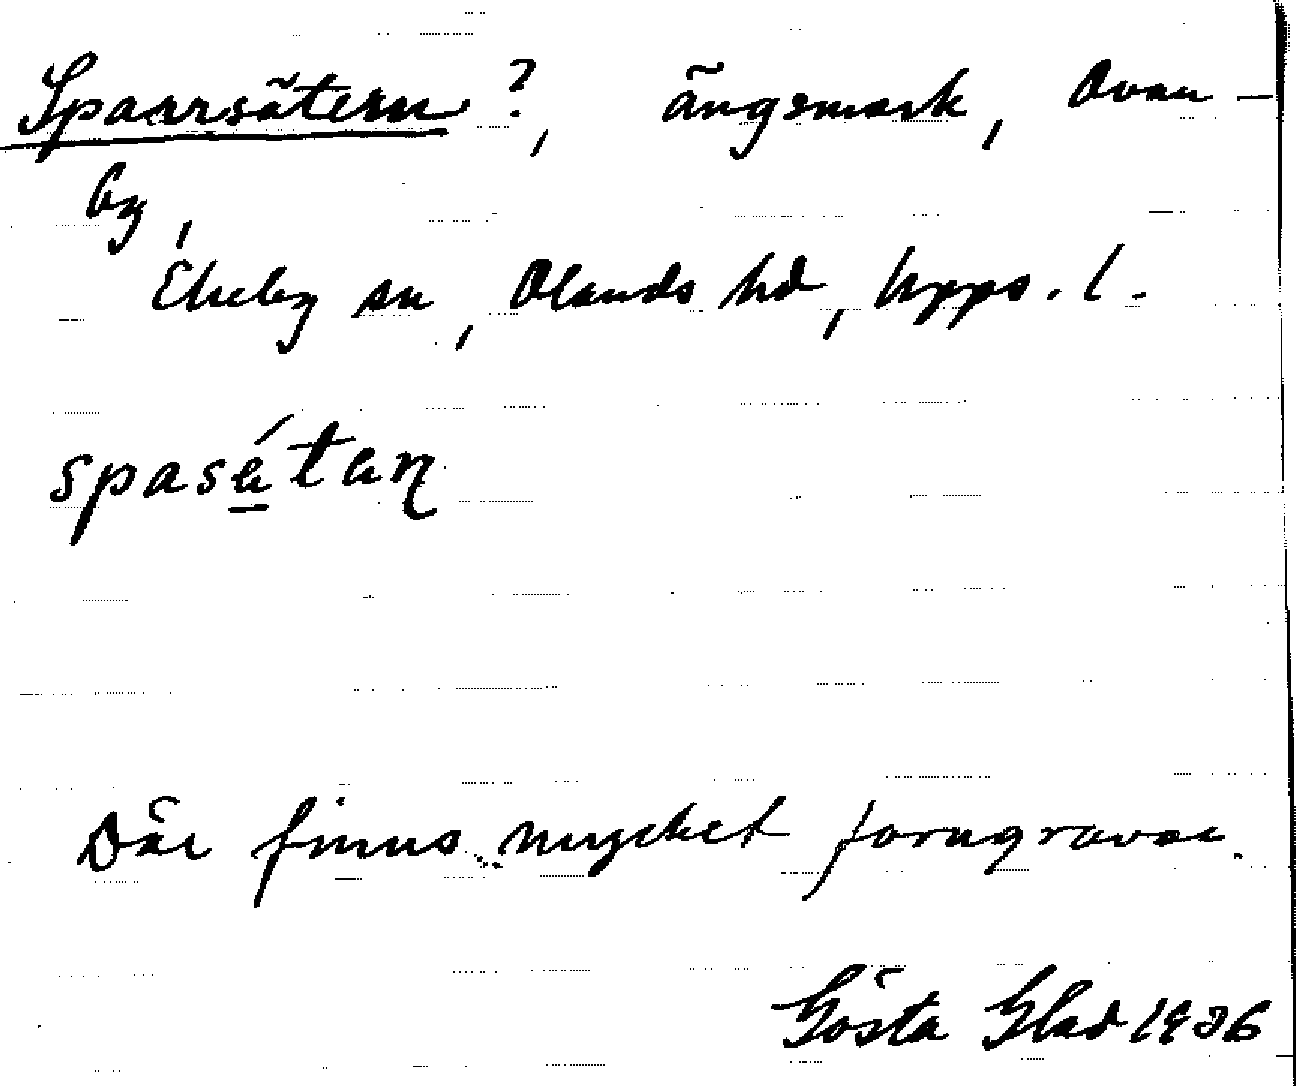 Sparrsätern?, ängsmark, Ovan-
by,
Ekeby sn, Olands hd, Upps. l.
spasätaɳ
Där finns mycket forngravar.
Gösta Glad 1936